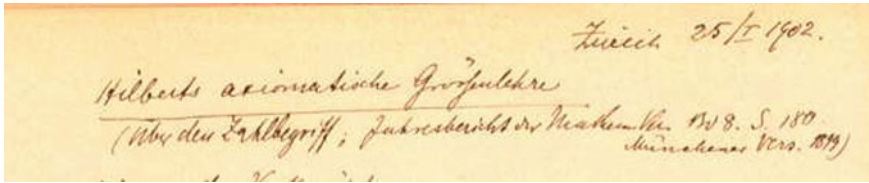 Zürich 25/I 1902.
Hilberts axiomatische Grössenlehre
(Über den Zahlbegriff; Jahresbericht der Mathem. Ver. Bd 8. S. 180
Münchener Vers. 1899)